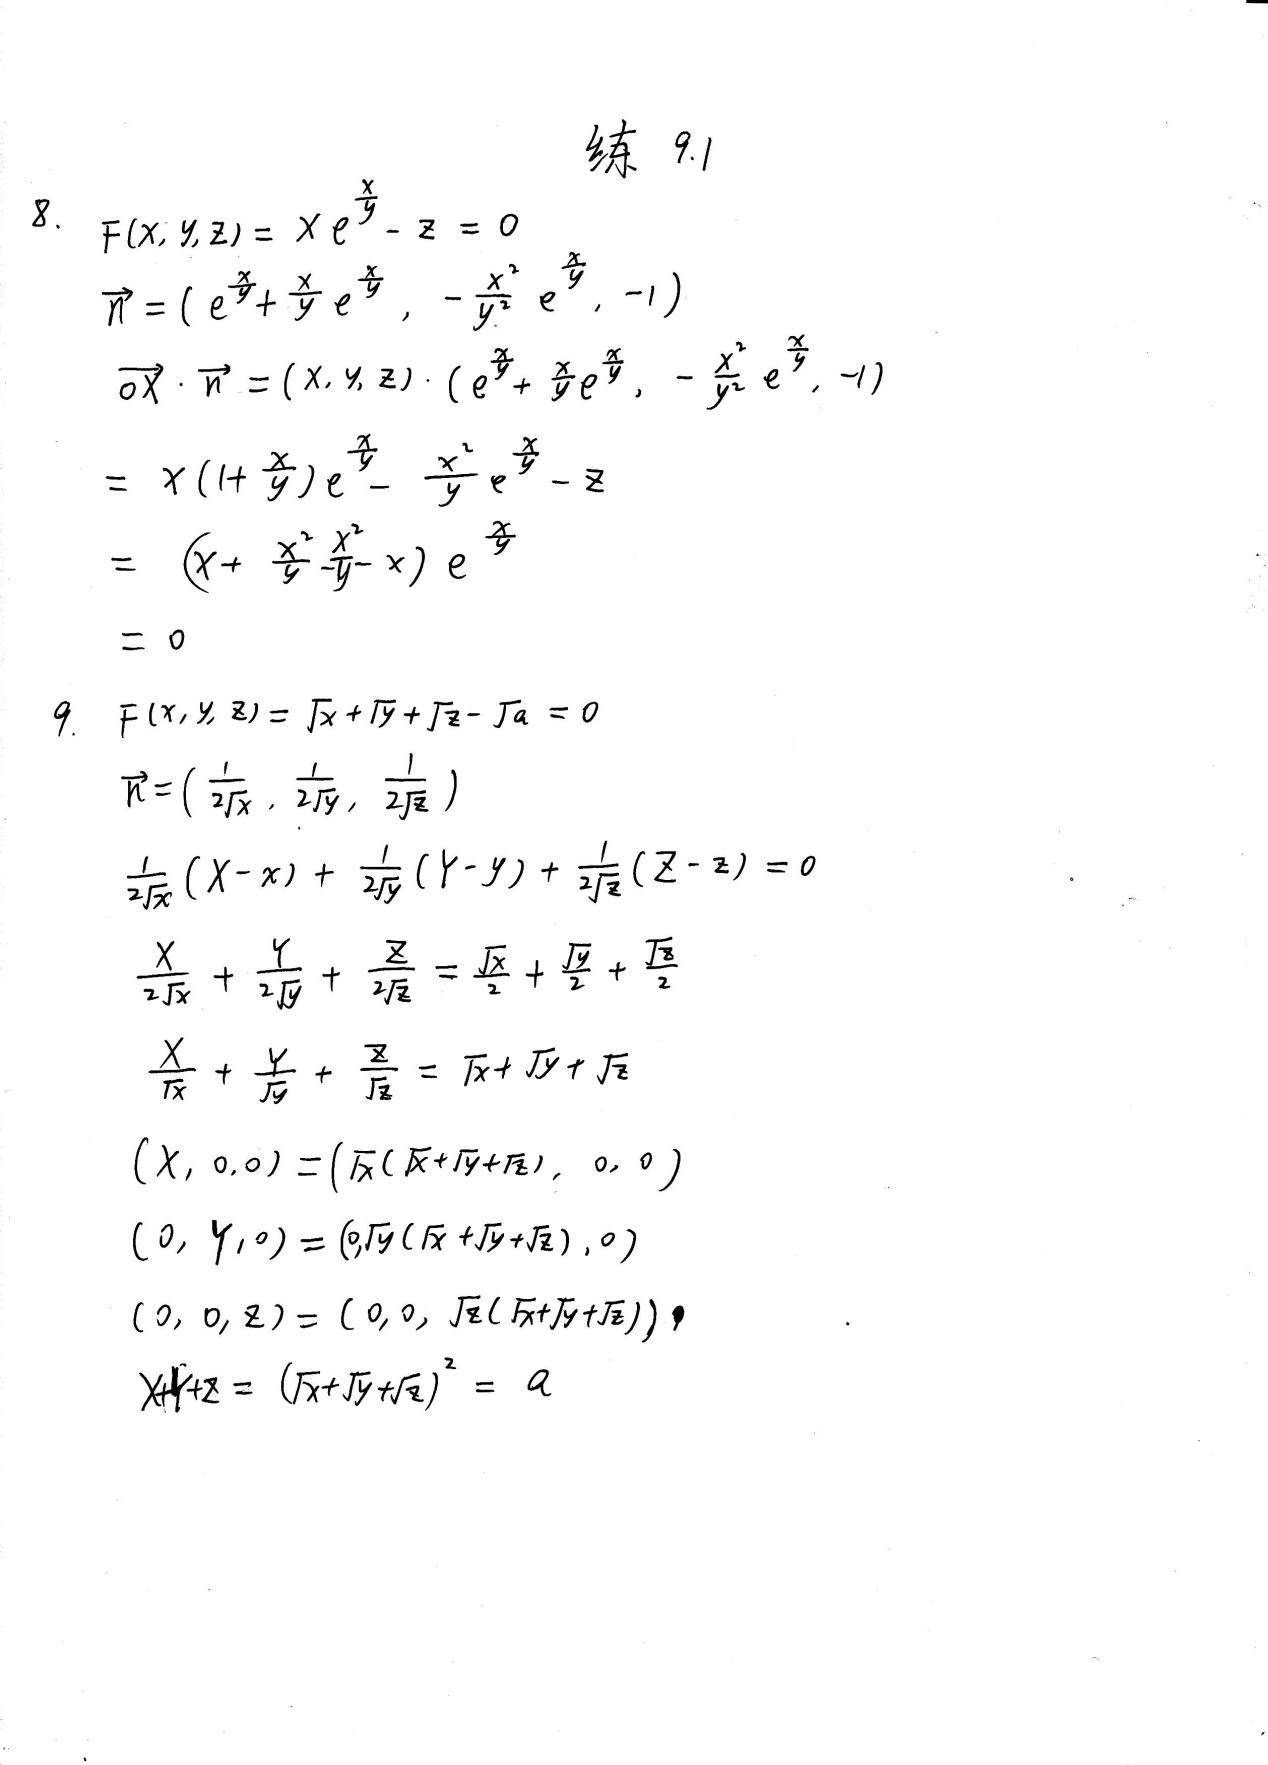 练 9.1
8. F(x, y, z) = xe^{\frac{x}{y}} - z = 0
\vec{n} = (e^{\frac{x}{y}} + \frac{x}{y}e^{\frac{x}{y}}, -\frac{x^2}{y^2}e^{\frac{x}{y}}, -1)
\vec{OX} · \vec{n} = (x, y, z) · (e^{\frac{x}{y}} + \frac{x}{y}e^{\frac{x}{y}}, -\frac{x^2}{y^2}e^{\frac{x}{y}}, -1)
= x(1+\frac{x}{y})e^{\frac{x}{y}} - \frac{x^2}{y}e^{\frac{x}{y}} - z
= (x + \frac{x^2}{y} - \frac{x^2}{y} - x)e^{\frac{x}{y}}
= 0
9. F(x, y, z) = \sqrt{x} + \sqrt{y} + \sqrt{z} - \sqrt{a} = 0
\vec{n} = (\frac{1}{2\sqrt{x}}, \frac{1}{2\sqrt{y}}, \frac{1}{2\sqrt{z}})
\frac{1}{2\sqrt{x}}(X-x) + \frac{1}{2\sqrt{y}}(Y-y) + \frac{1}{2\sqrt{z}}(Z-z) = 0
\frac{X}{2\sqrt{x}} + \frac{Y}{2\sqrt{y}} + \frac{Z}{2\sqrt{z}} = \frac{\sqrt{x}}{2} + \frac{\sqrt{y}}{2} + \frac{\sqrt{z}}{2}
\frac{X}{\sqrt{x}} + \frac{Y}{\sqrt{y}} + \frac{Z}{\sqrt{z}} = \sqrt{x} + \sqrt{y} + \sqrt{z}
(X, 0, 0) = (\sqrt{x}(\sqrt{x}+\sqrt{y}+\sqrt{z}), 0, 0)
(0, Y, 0) = (0, \sqrt{y}(\sqrt{x}+\sqrt{y}+\sqrt{z}), 0)
(0, 0, Z) = (0, 0, \sqrt{z}(\sqrt{x}+\sqrt{y}+\sqrt{z})),
X+Y+Z = (\sqrt{x}+\sqrt{y}+\sqrt{z})^2 = a